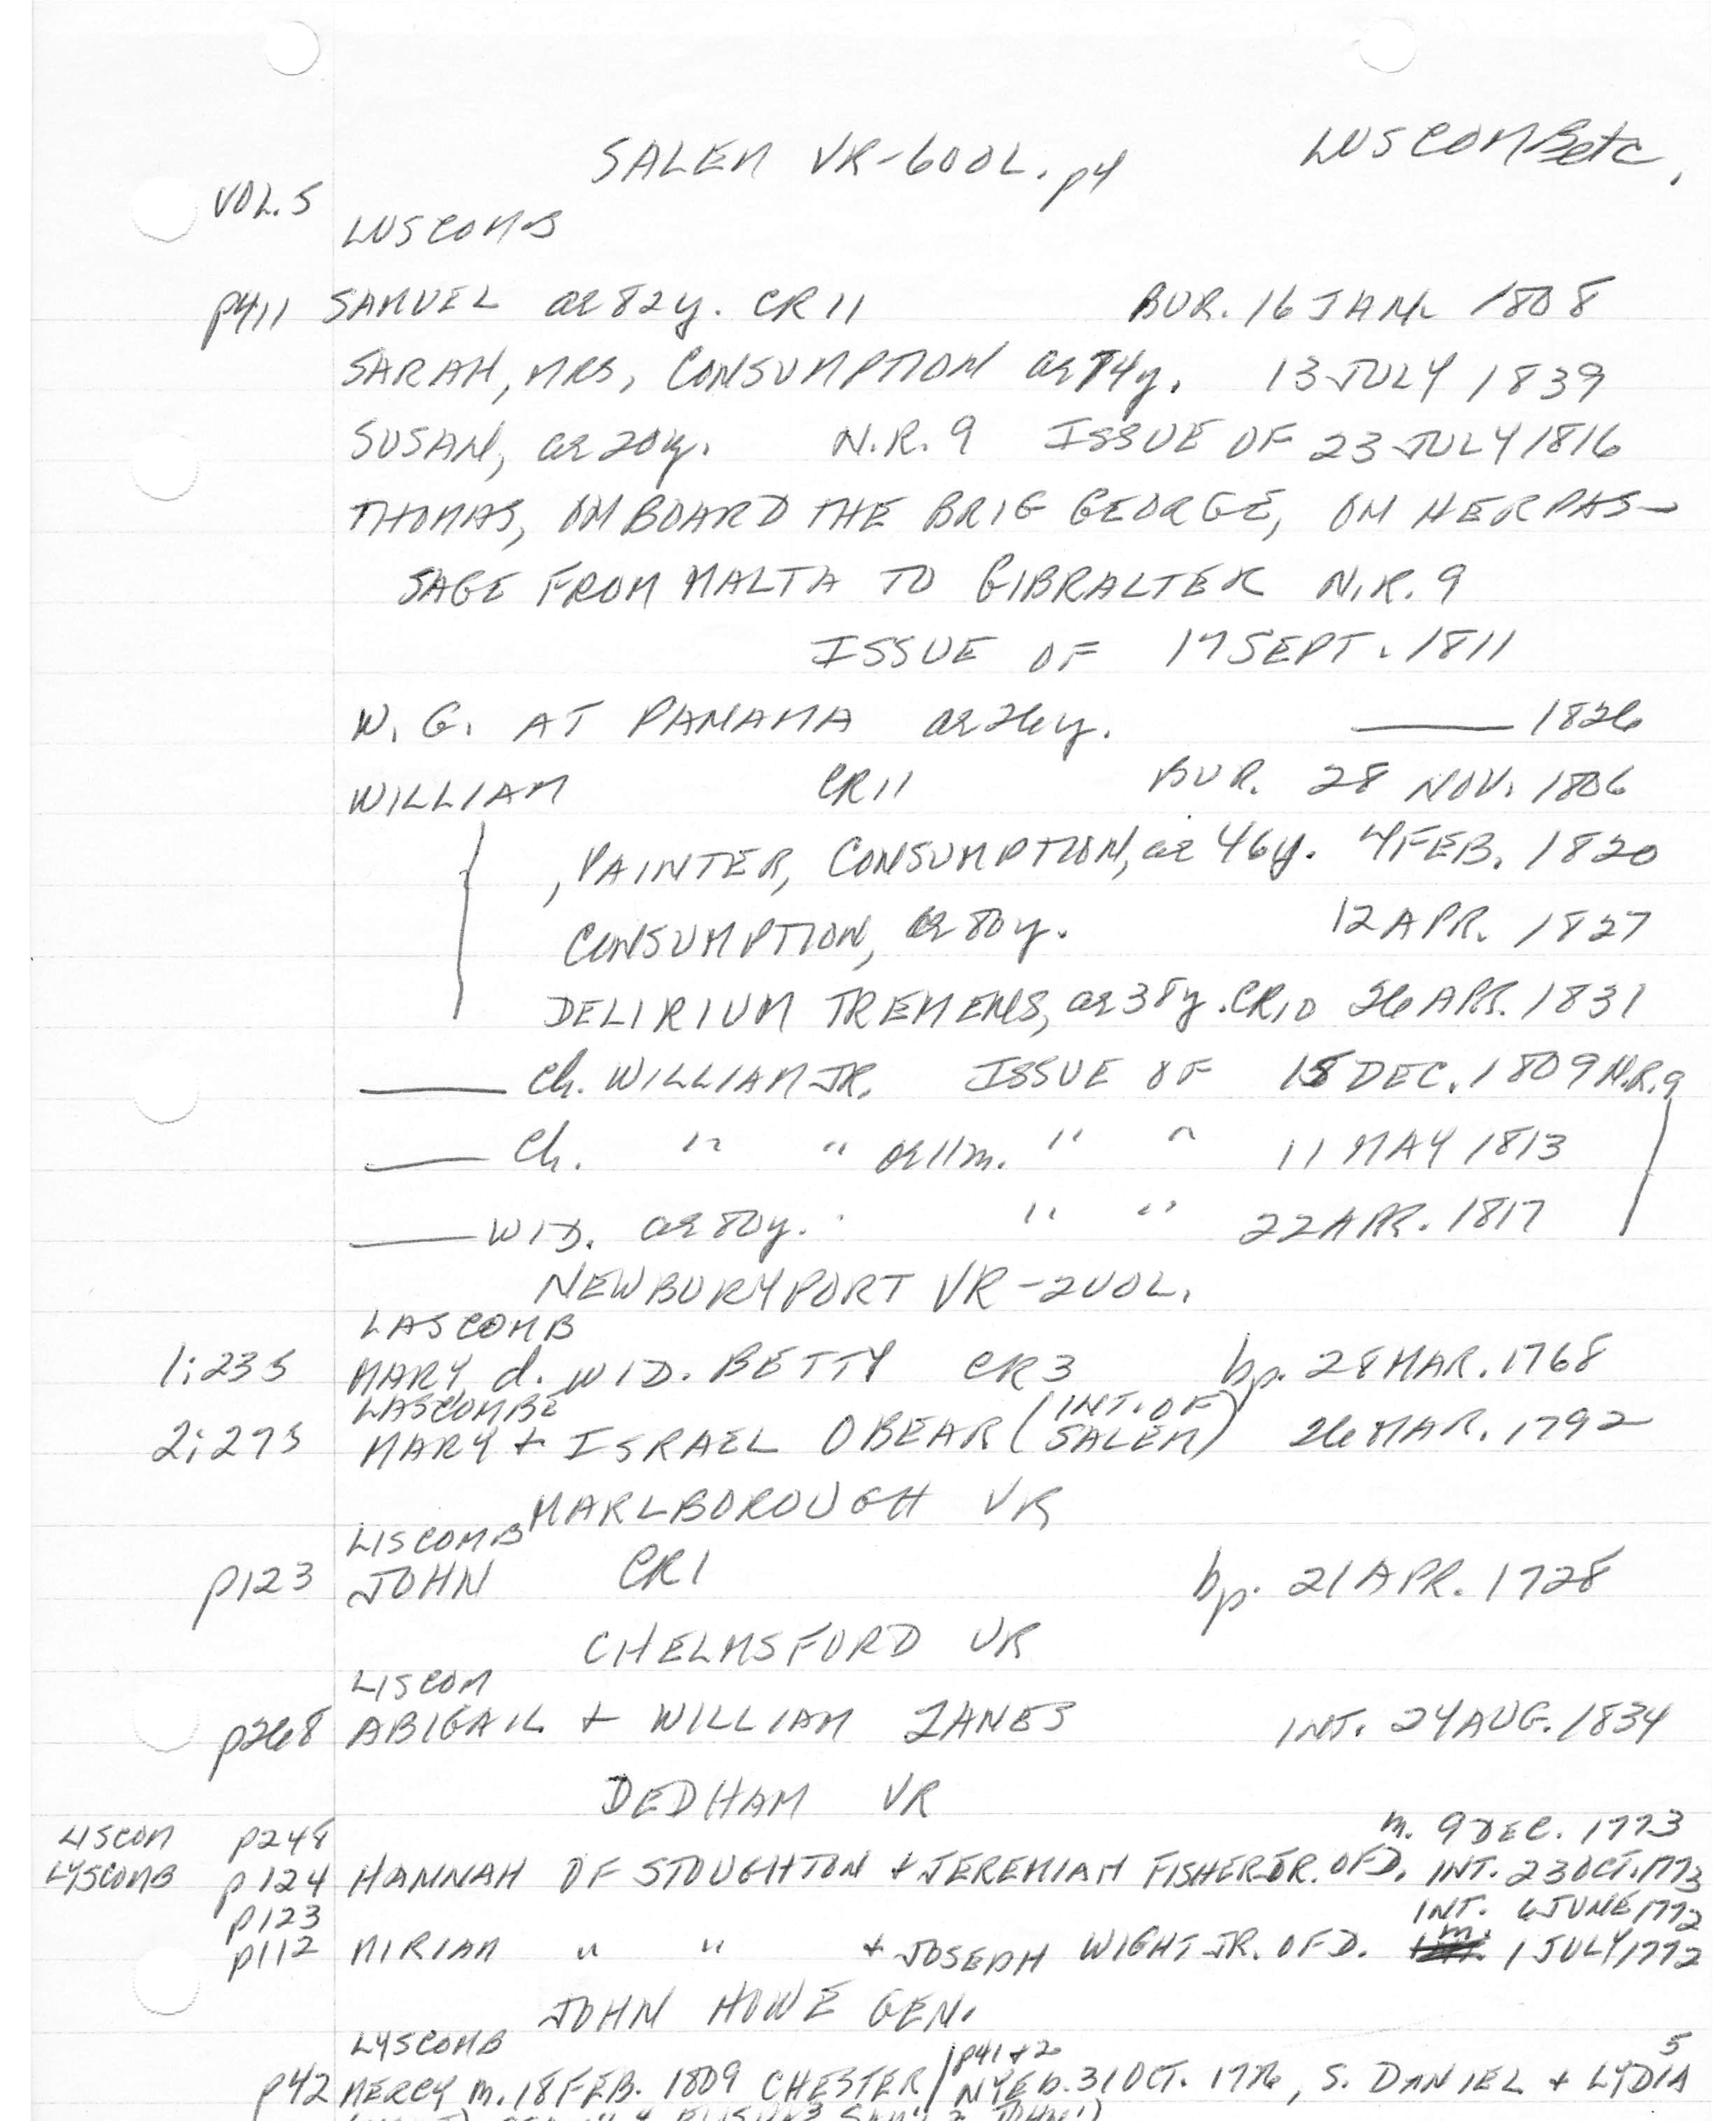 SALEM VR-6VOL. p4 LUSCOMB etc.
VOL. 5
LUSCOMB
p411 SAMUEL ae 82y. CR11 BUR. 16 JAN. 1808
SARAH, MRS, CONSUMPTION ae 74y. 13 JULY 1839
SUSAN, ae 20y. N.R. 9 ISSUE OF 23 JULY 1816
THOMAS, ON BOARD THE BRIG GEORGE, ON HER PAS-
SAGE FROM MALTA TO GIBRALTER N.R. 9
ISSUE OF 17 SEPT. 1811
W. G. AT PANAMA ae 26y. —— 1826
WILLIAM CR11 BUR. 28 NOV. 1806
, PAINTER, CONSUMPTION, ae 46y. 4 FEB. 1820
CONSUMPTION, ae 80y. 12 APR. 1827
DELIRIUM TREMENS, ae 38y. CR10 26 APR. 1831
—— Ch. WILLIAM JR. ISSUE OF DEC. 1809 N.R. 9
—— Ch. " " ae 11m. " " 11 MAY 1813
—— WID. ae 80y. " " 22 APR. 1817
NEWBURYPORT VR-2VOL.
LASCOMB
1:235 MARY, d. WID. BETTY CR3 bp. 28 MAR. 1768
LASCOMBE (INT. OF
2:275 MARY + ISRAEL OBEAR SALEM) 26 MAR. 1792
MARLBOROUGH VR
LISCOMB
p123 JOHN CR1 bp. 21 APR. 1728
CHELMSFORD VR
LISCOM
p268 ABIGAIL + WILLIAM JANES INT. 24 AUG. 1834
DEDHAM VR
LISCOM p248 m. 9 DEC. 1773
LYSCOMB p124 HANNAH OF STOUGHTON + JEREMIAH FISHER JR. OF D. INT. 23 OCT. 1773
p123 INT. 6 JUNE 1772
p112 MIRIAM " " + JOSEPH WIGHT JR. OF D. m. 1 JULY 1772
JOHN HOWE GEN.
LYSCOMB p41+2 5
p42 MERCY m. 18 FEB. 1809 CHESTER NYE b. 31 OCT. 1776, S. DANIEL + LYDIA